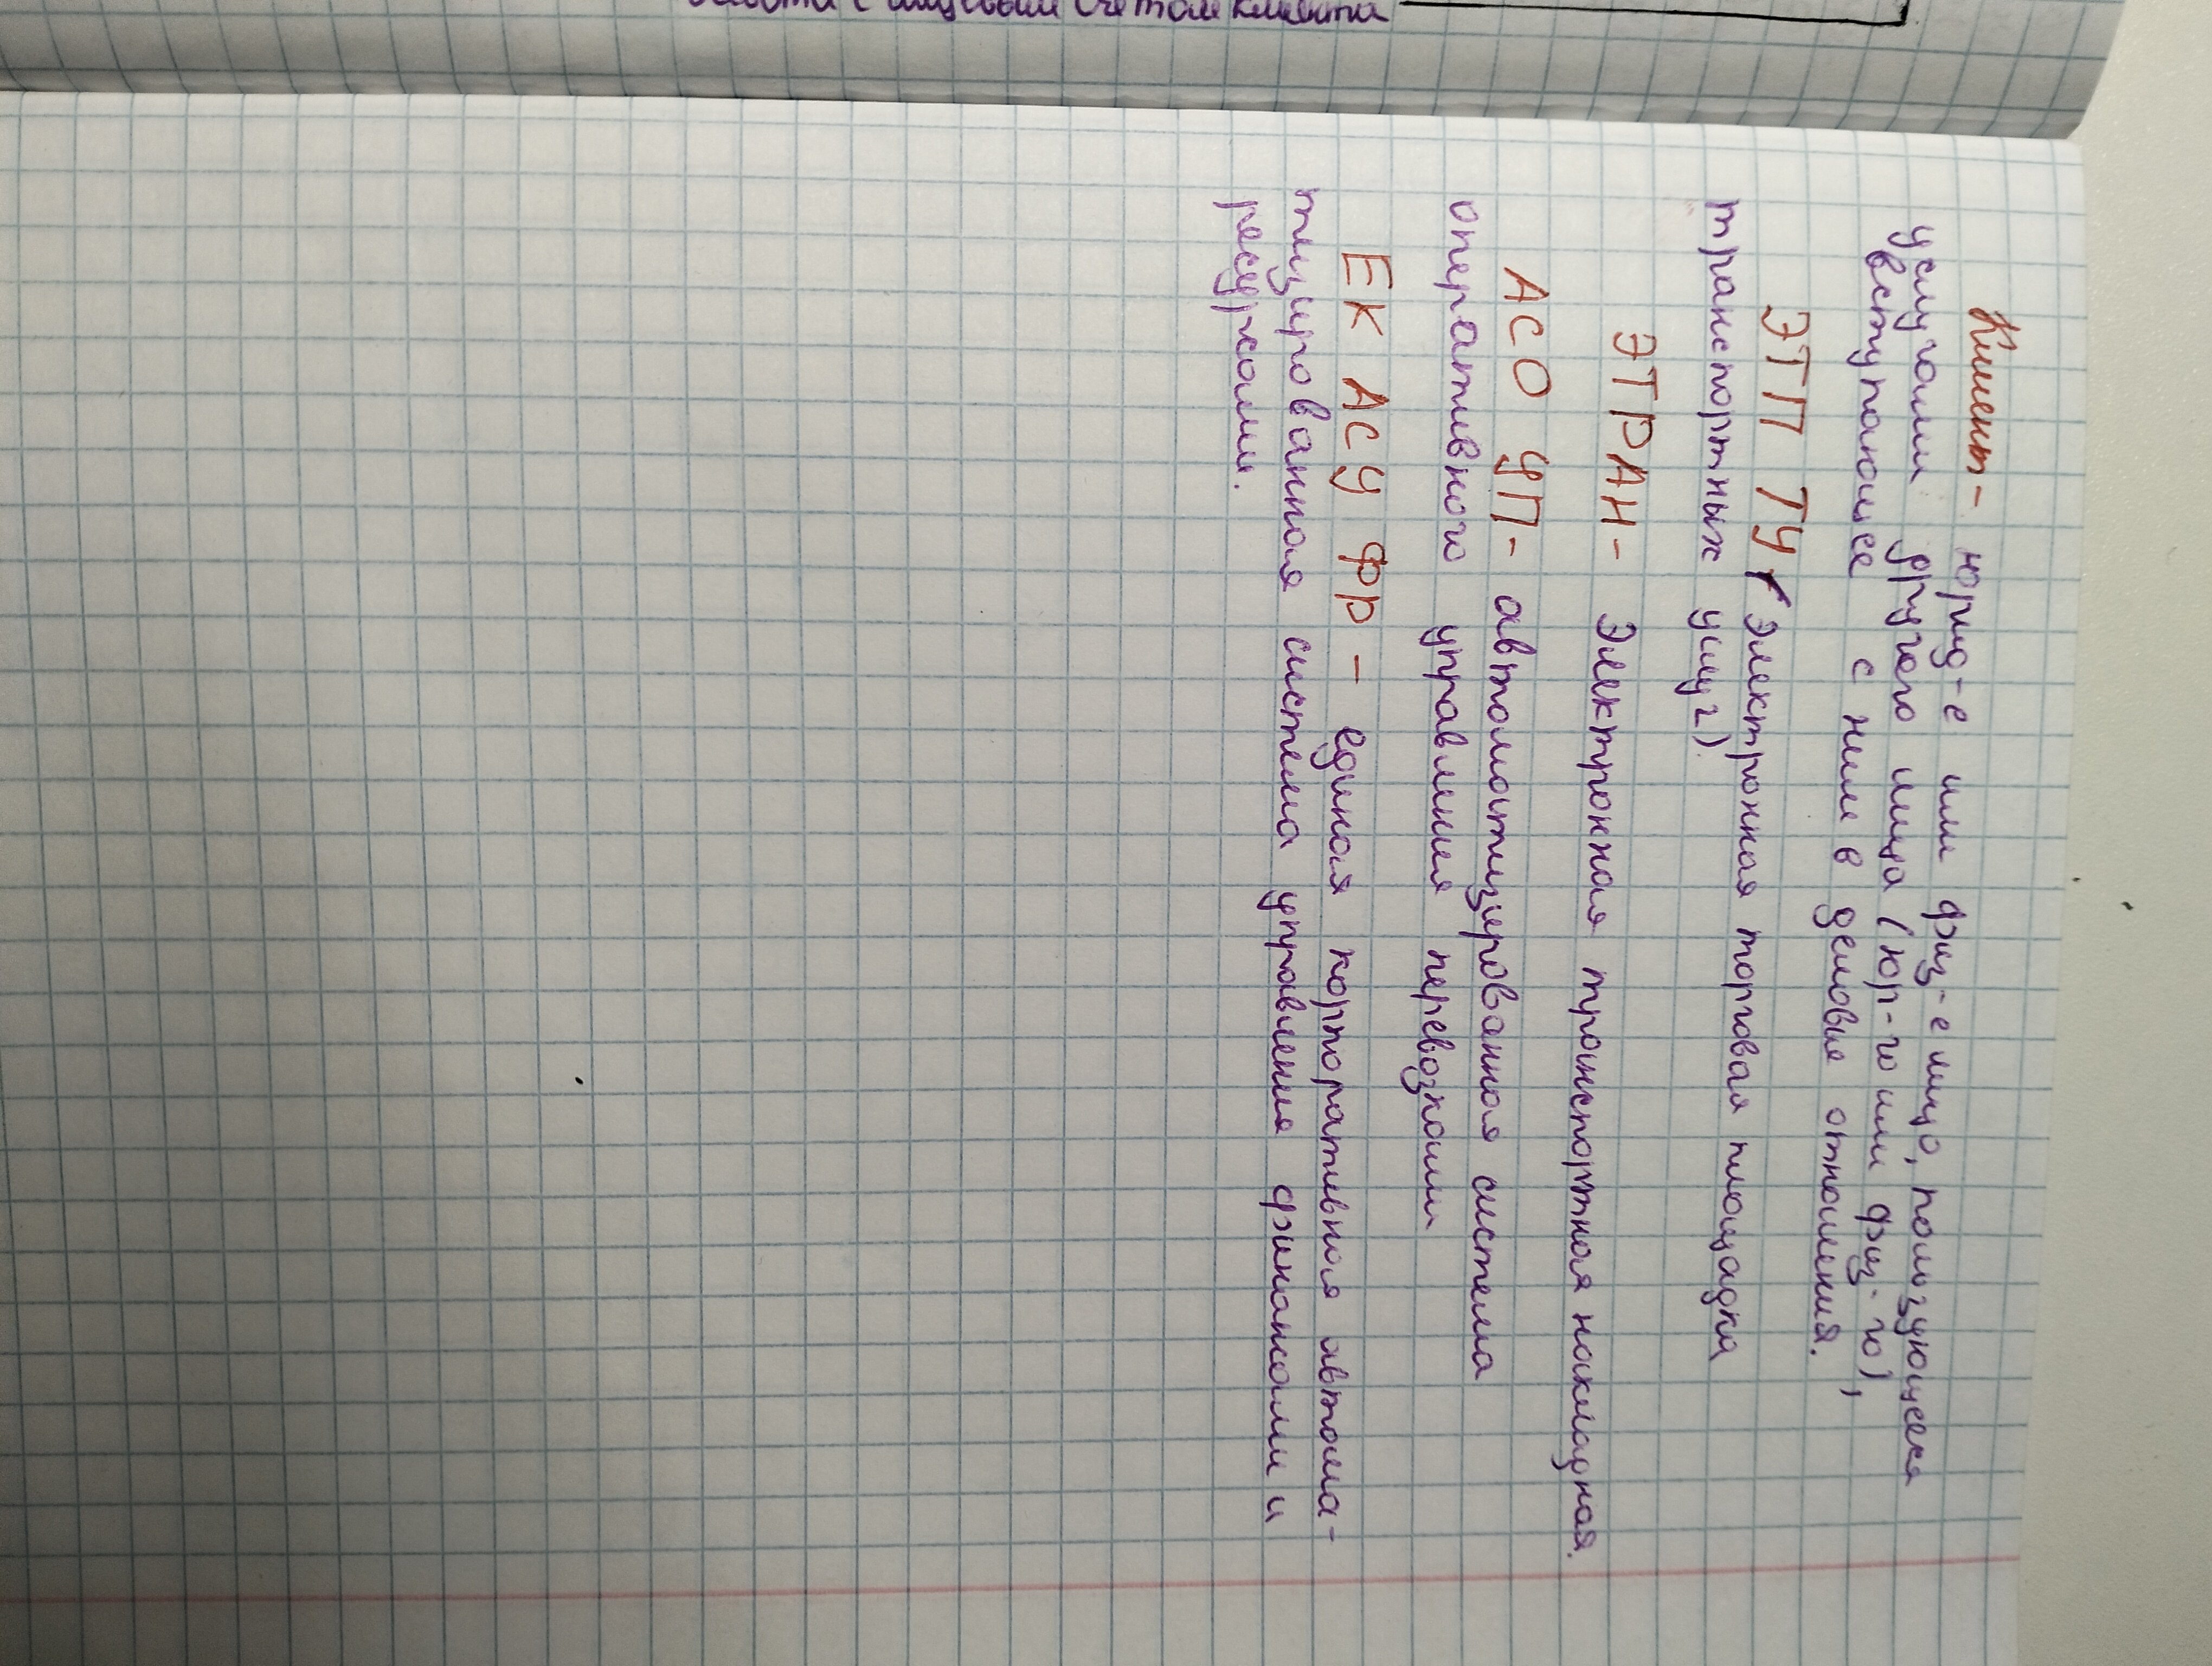 с лицевым счетом клиента
Клиент - юрид-е или физ-е лицо, пользующееся
услугами другого лица (юр-го или физ-го),
вступающее с ним в деловые отношения.
ЭТП ТУ (Электронная торговая площадка
транспортных услуг)
ЭТРАН - Электронная транспортная накладная.
АСО УП - автоматизированная система
оперативного управления перевозками
ЕК АСУ ФР - единая корпоративная автома-
тизированная система управления финансами и
ресурсами.